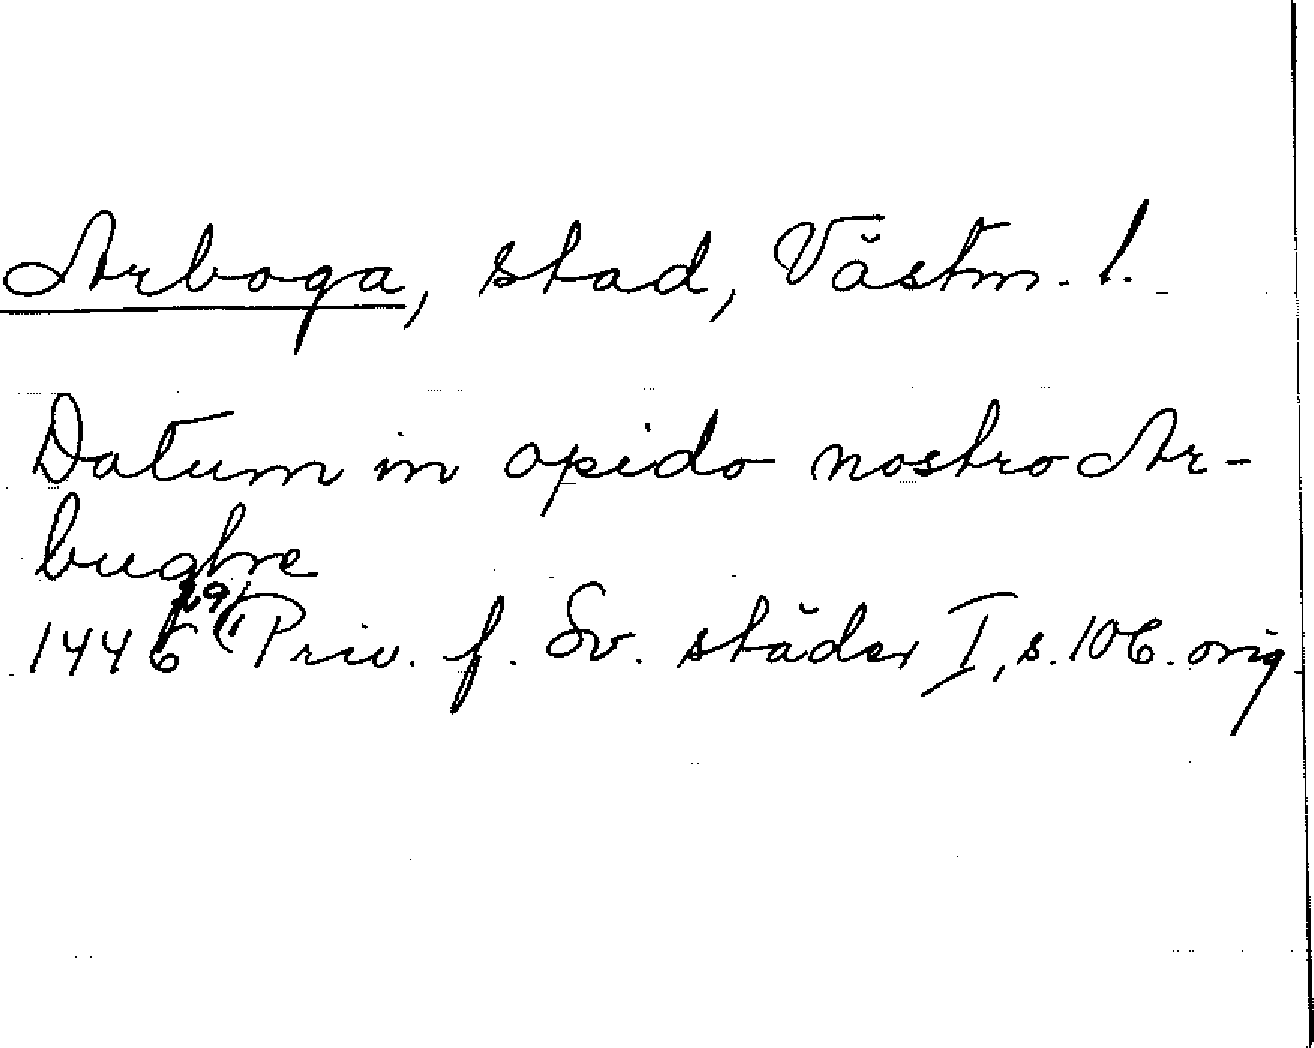 Arboga, stad, Västm. l.
Datum in opido nostro Ar-
bughre
1446 29/1 Priv. f. Sv. städer I, s. 106. orig